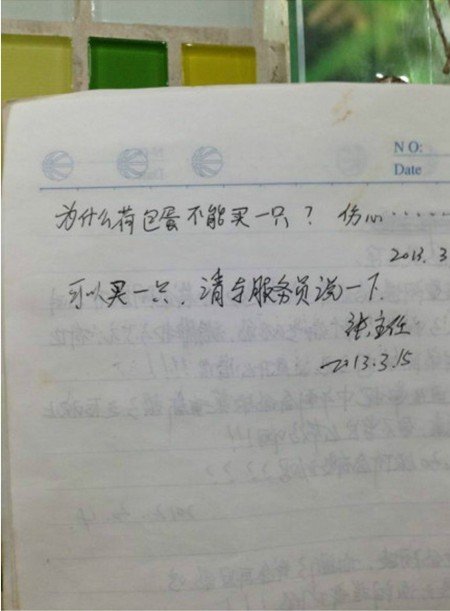 NO:
Date
为什么荷包蛋不能买一只？ 伤心······
2013.3
可以买一只，请与服务员说一下.
张主任
2013.3.15